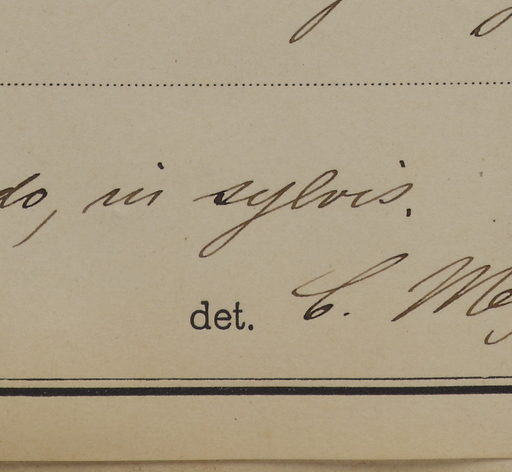 do, in sylvis.
det. C. M